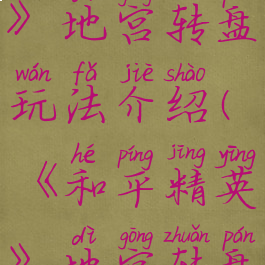 》地宫转盘
wán fǎ jiè shào
玩法介绍(
hé píng jīng yīng
《和平精英
dì gōng zhuǎn pán
》地宫转盘